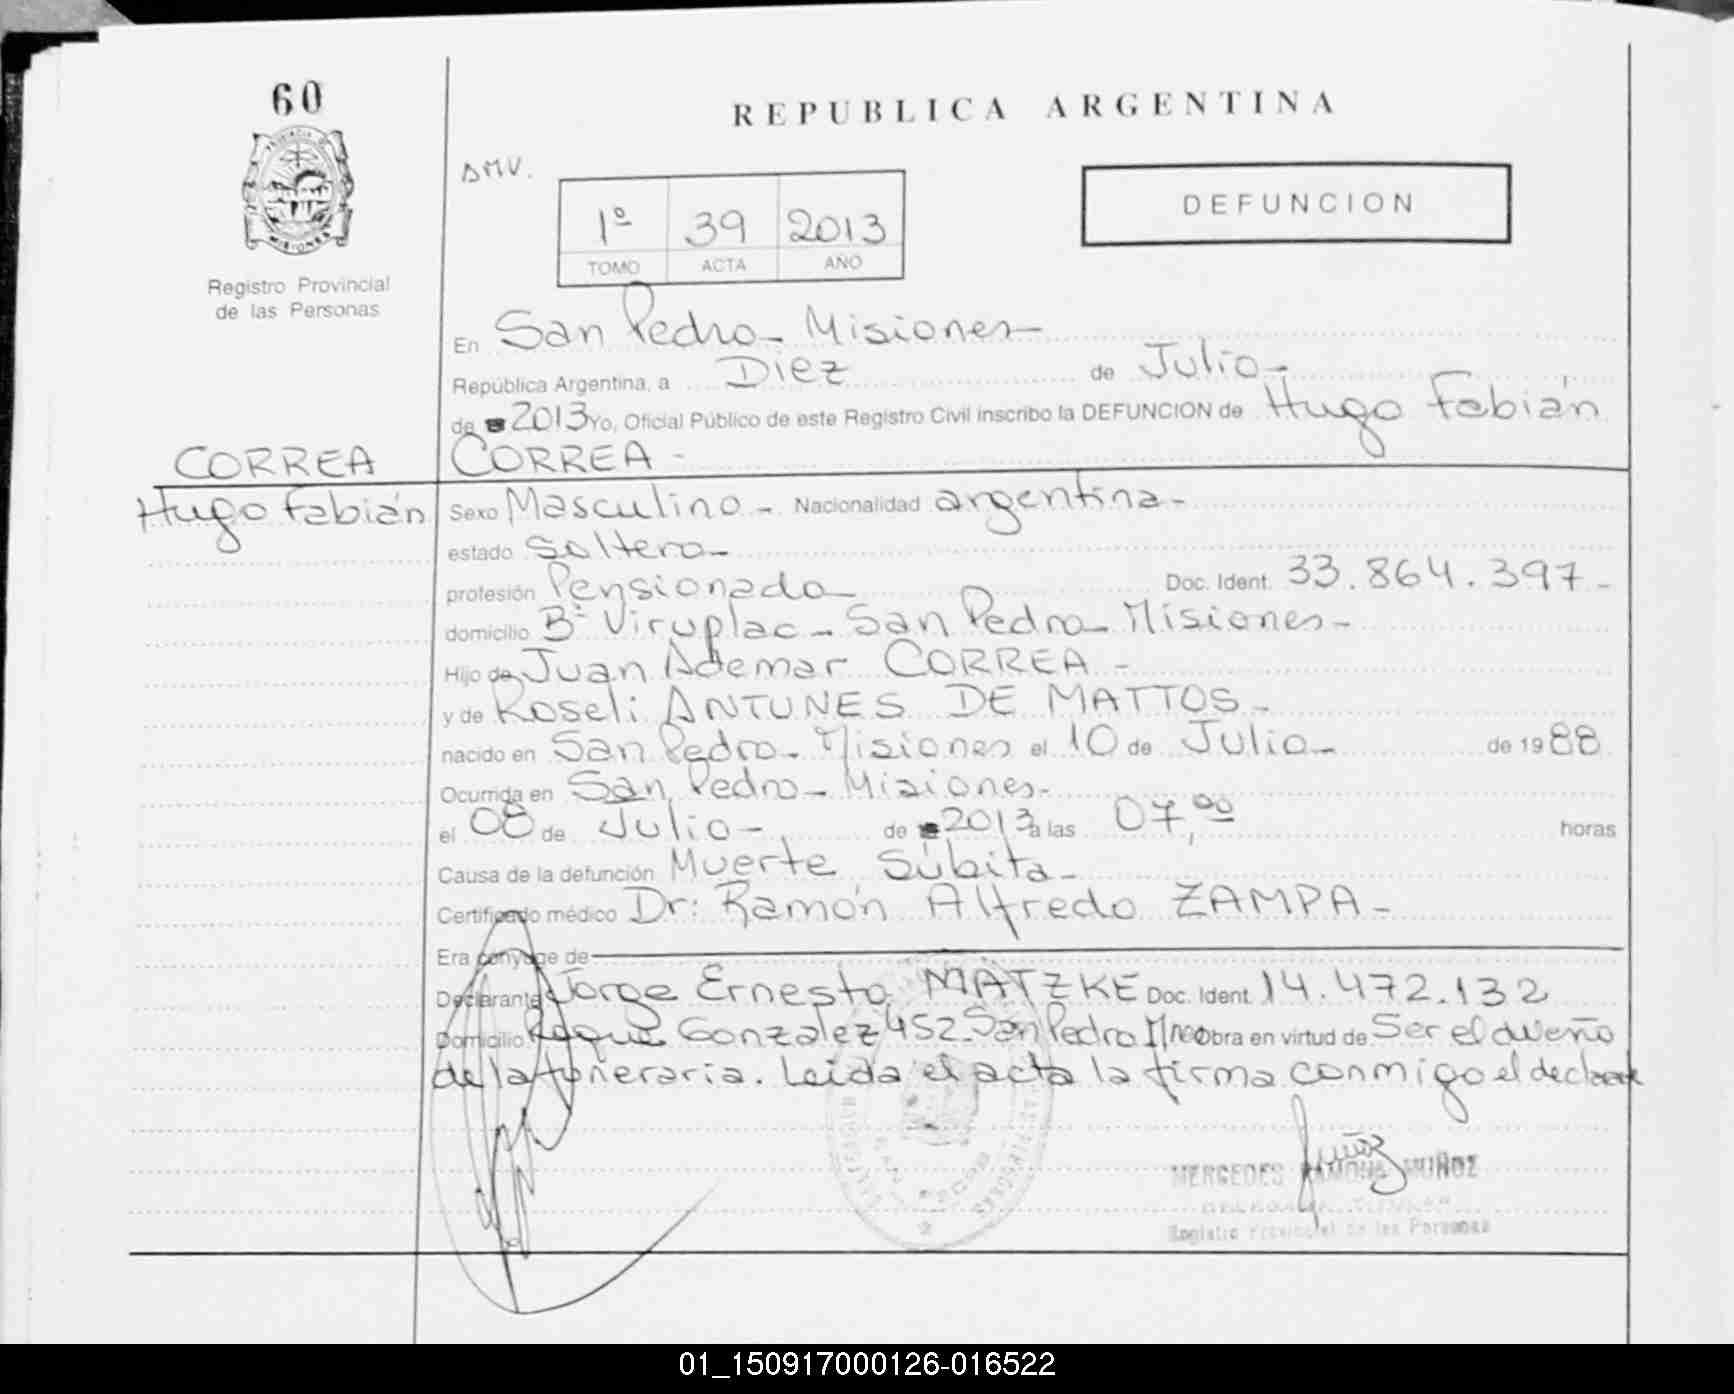 60
REPUBLICA ARGENTINA
DMV.
1º 39 2013
TOMO ACTA AÑO
DEFUNCION
MISIONES
Registro Provincial
de las Personas
En San Pedro - Misiones -
República Argentina, a Diez de Julio -
de 2013 Yo, Oficial Público de este Registro Civil inscribo la DEFUNCION de Hugo Fabián
CORREA -
CORREA
Hugo Fabián
Sexo Masculino - Nacionalidad argentina -
estado Soltero -
profesión Pensionado Doc. Ident. 33.864.397 -
domicilio Bº Viruplac - San Pedro - Misiones -
Hijo de Juan Ademar CORREA -
y de Roseli ANTUNES DE MATTOS -
nacido en San Pedro - Misiones el 10 de Julio - de 1988
Ocurrida en San Pedro - Misiones -
el 08 de Julio - de 2013 a las 07,00 horas
Causa de la defunción Muerte Súbita -
Certificado médico Dr: Ramón Alfredo ZAMPA -
Era cónyuge de
Declarante Jorge Ernesto MATZKE Doc. Ident. 14.472.132
Domicilio Roque Gonzalez 452 - San Pedro Mnes Obra en virtud de Ser el dueño
de la funeraria. Leida el acta la firma conmigo el declarante
Muñoz
MERCEDES RAMONA MUÑOZ
DELEGADA TITULAR
Registro Provincial de las Personas
01_150917000126-016522